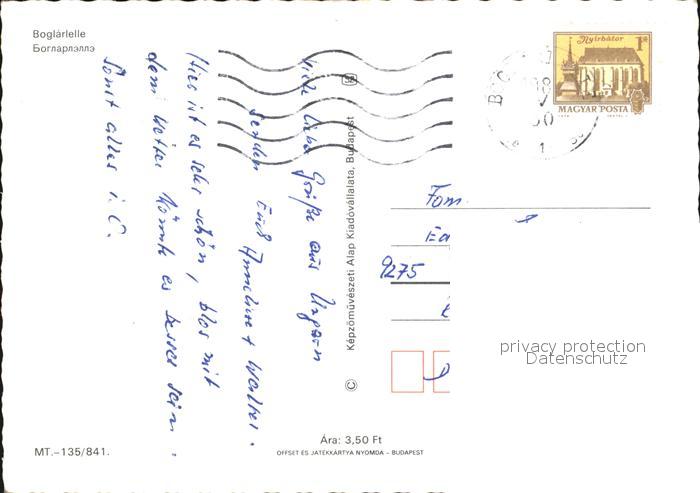 Boglárlelle
Богларлэллэ
Viele liebe Grüße aus Ungarn
senden Euch Anneliese + Walter.
Hier ist es sehr schön, blos mit
dem Wetter könnte es besser sein.
Sonst alles i. O.
© Képzőművészeti Alap Kiadóvállalata, Budapest
Nyírbátor
1 Ft
MAGYAR POSTA
Fam.
9275
privacy protection
Datenschutz
MT.–135/841.
Ára: 3,50 Ft
OFFSET ÉS JÁTÉKKÁRTYA NYOMDA – BUDAPEST